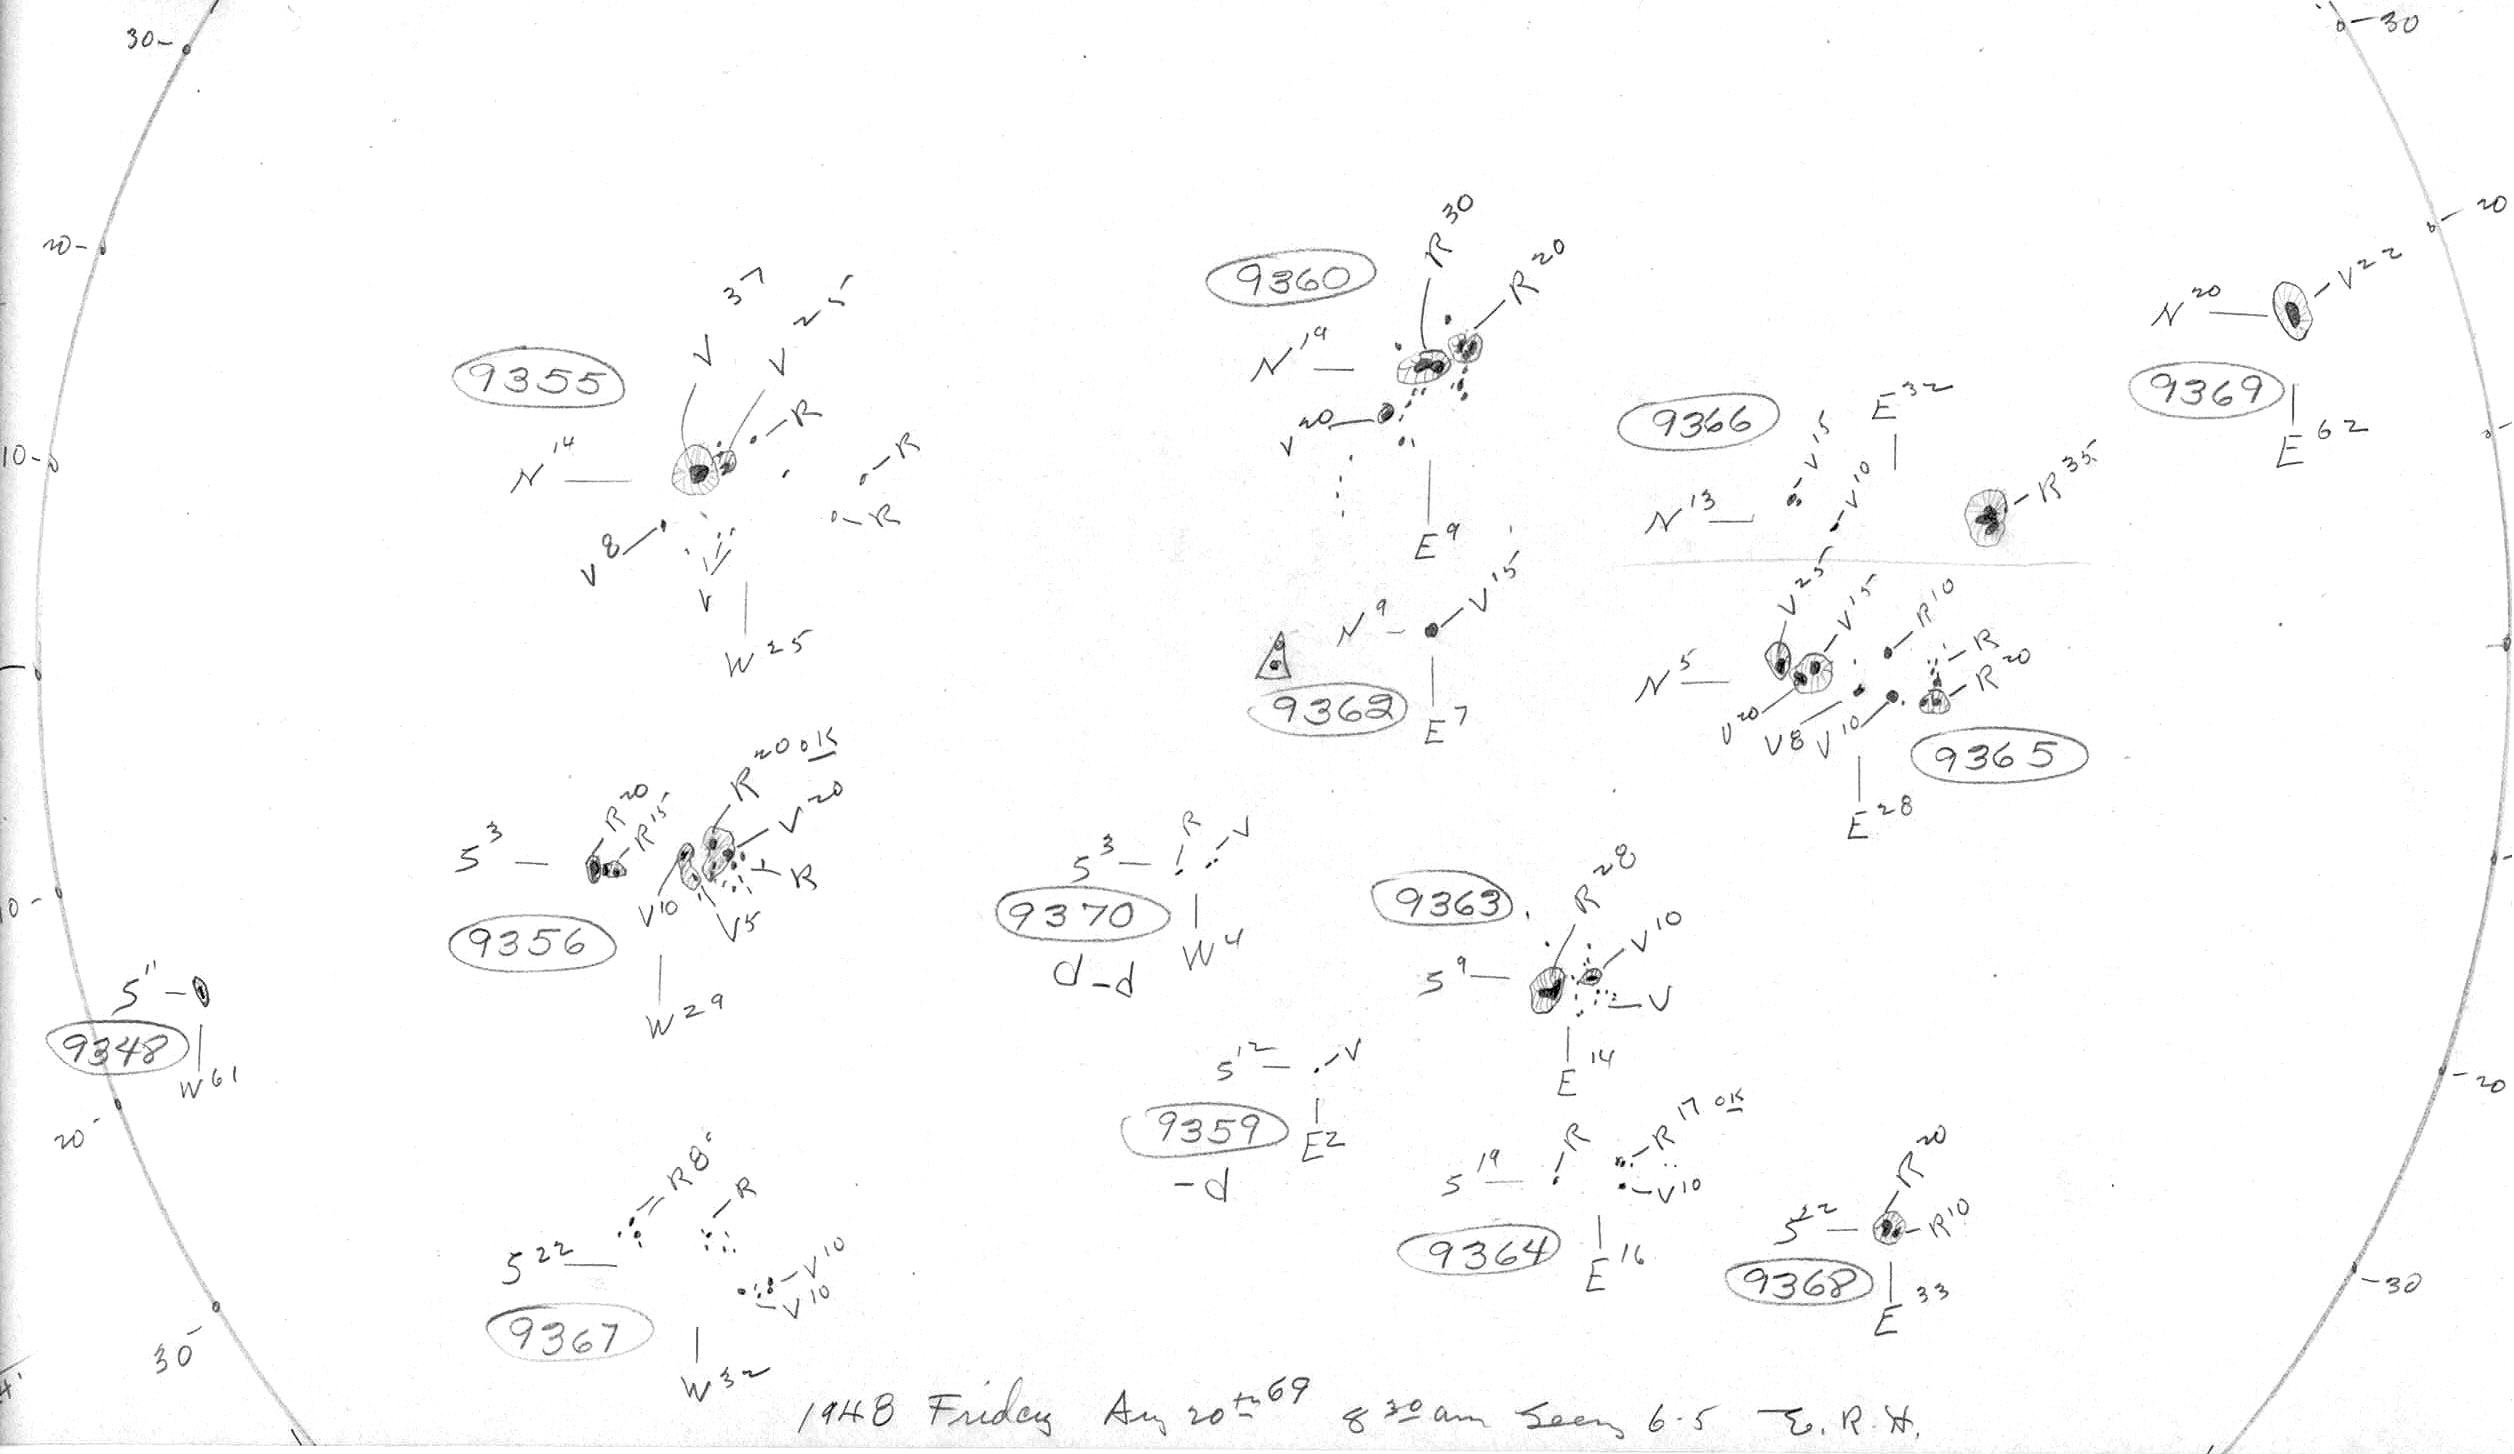 30
30
20
20
10
V 37
V 25
R
R
R
9355
N 14
V 8
V
W 25
R 30
R 20
9360
N 19
V 20
E 9
N 20
V 22
9369
E 62
9366
V 15
E 32
V 10
N 13
R 35
N 9
V 15
9362
E 7
V 25
V 15
R 10
R
R 20
N 5
V 20
V 8
V 10
9365
E 28
R 20 OK
V 20
R 20
R 15
S 3
R
V 10
V 5
9356
W 29
R
V
S 3
9370
W 4
d-d
R 28
9363
V 10
S 9
V
E 14
10
S 11
9348
W 61
20
S 12
V
9359
E 2
-d
R
R 17 OK
S 19
V 10
9364
E 16
20
R 20
S 22
R 10
9368
E 33
R 8
R
S 22
V 10
V 10
9367
W 32
30
30
1948 Friday Aug 20th 69 8 30 am Seeing 6-5 E.R.H.